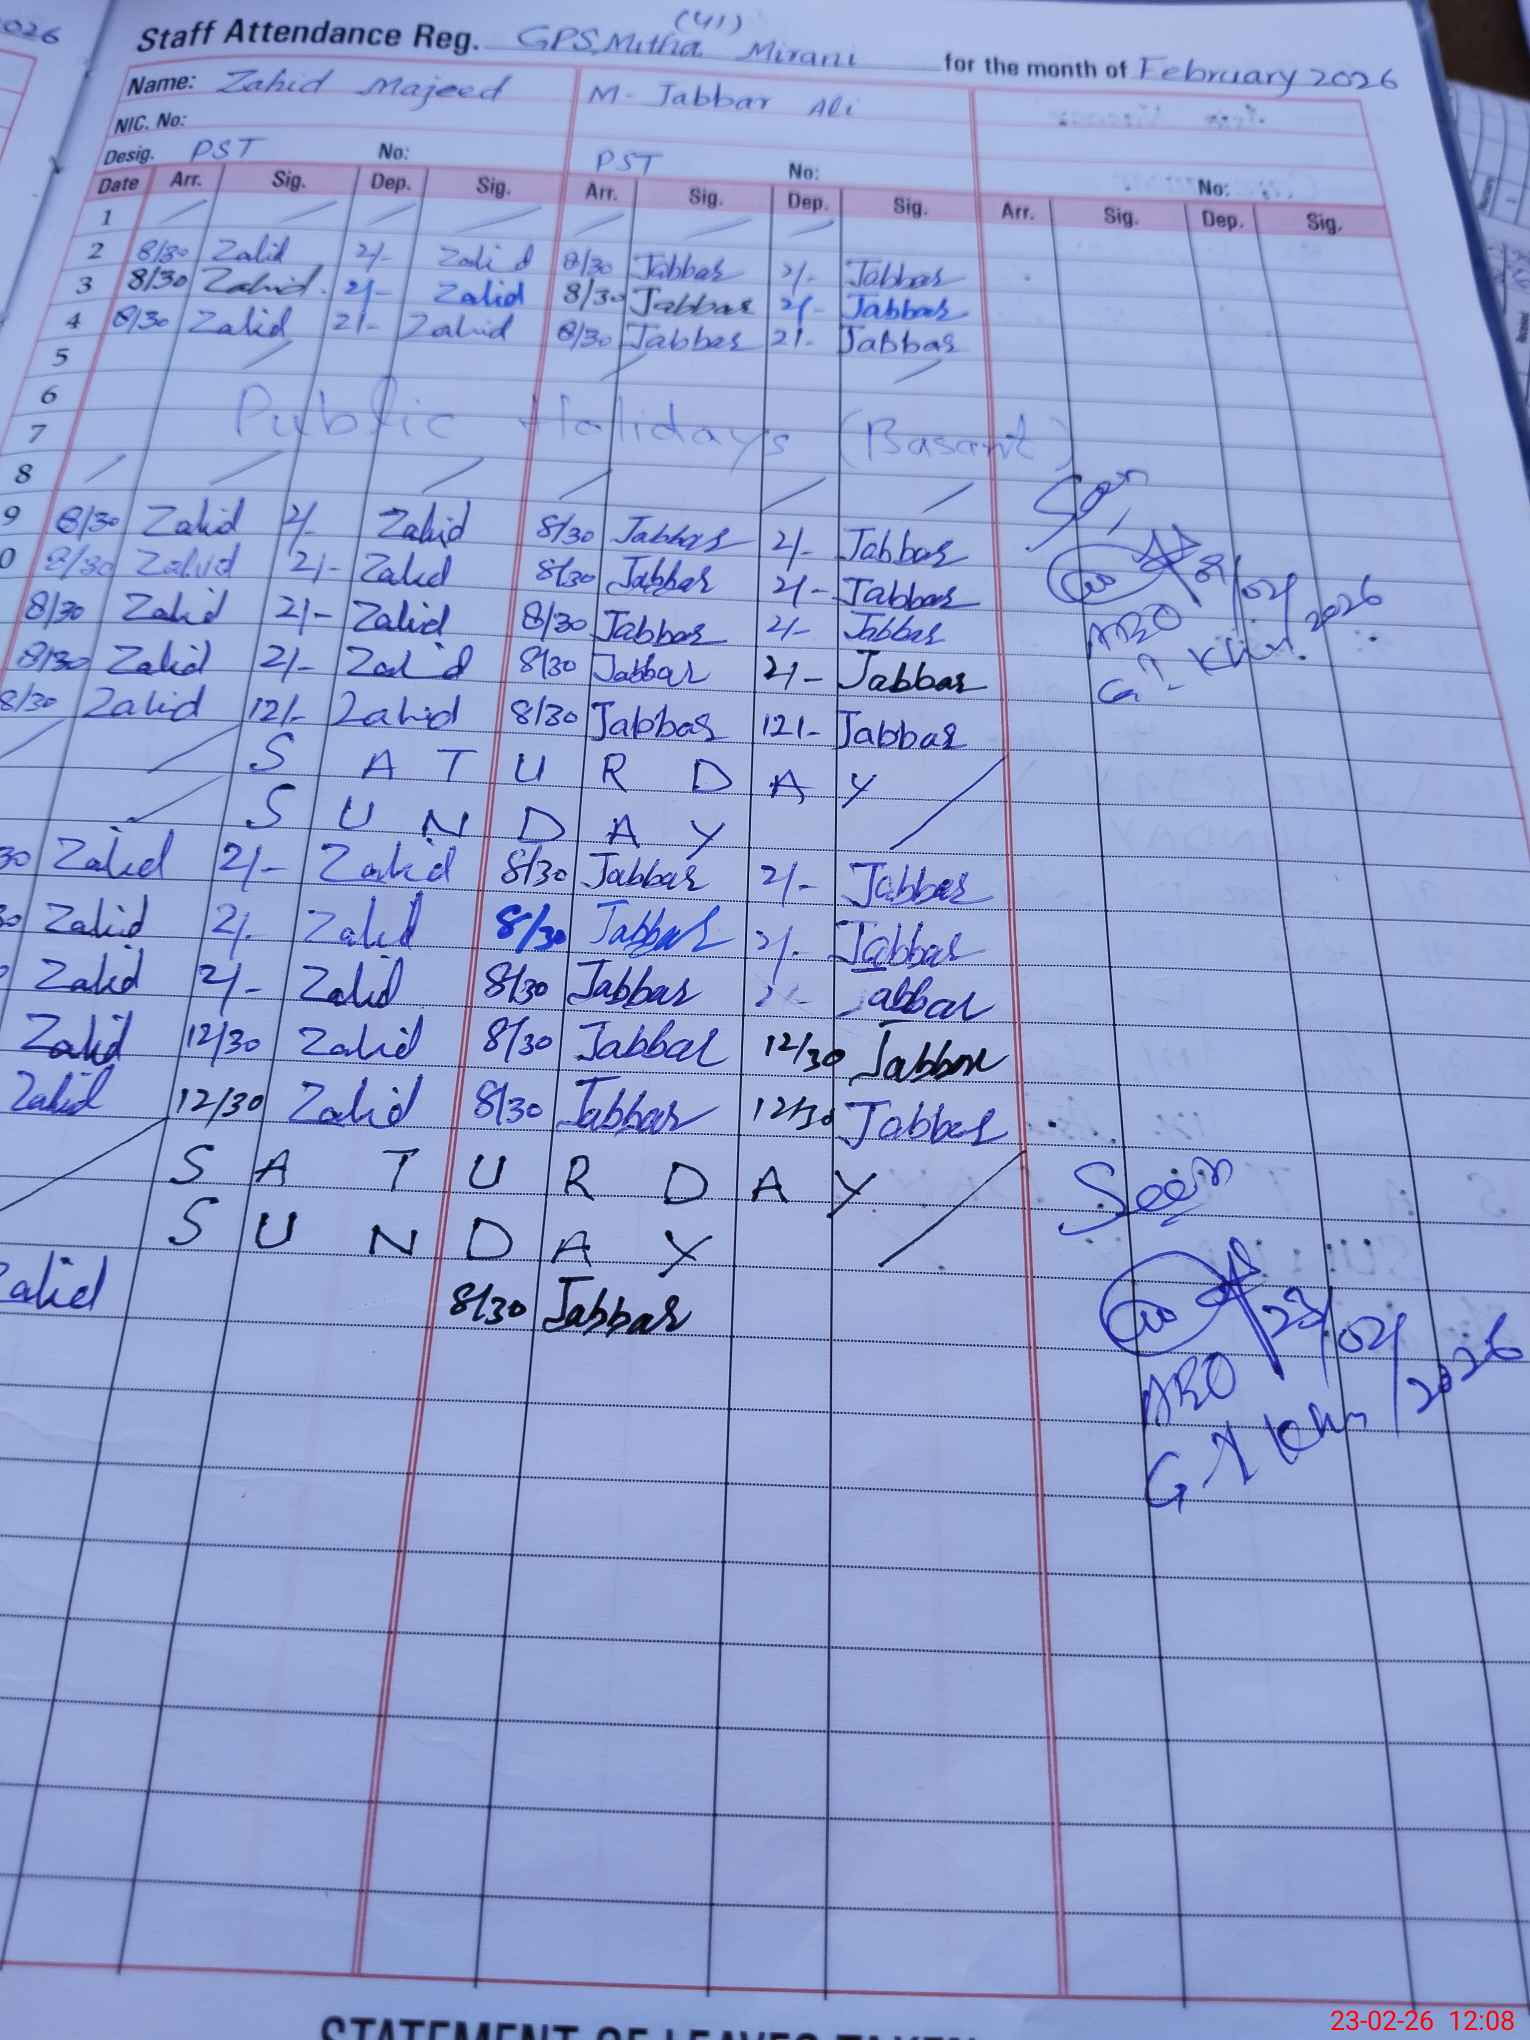 2026
(41)
Staff Attendance Reg. GPS Mitha Mirani for the month of February 2026
Name: Zahid Majeed M. Jabbar Ali
NIC. No:
Desig. PST No: PST No: No:
Date Arr. Sig. Dep. Sig. Arr. Sig. Dep. Sig. Arr. Sig. Dep. Sig.
1
2 8/30 Zahid 2/- Zahid 8/30 Jabbar 2/- Jabbar
3 8/30 Zahid 2/- Zahid 8/30 Jabbar 2/- Jabbar
4 8/30 Zahid 2/- Zahid 8/30 Jabbar 2/- Jabbar
5
6
7 Public Holidays (Basant)
8
9 8/30 Zahid 2/- Zahid 8/30 Jabbar 2/- Jabbar
0 8/30 Zahid 2/- Zahid 8/30 Jabbar 2/- Jabbar
8/30 Zahid 2/- Zahid 8/30 Jabbar 2/- Jabbar
8/30 Zahid 2/- Zahid 8/30 Jabbar 2/- Jabbar
8/30 Zahid 12/- Zahid 8/30 Jabbar 12/- Jabbar
SATURDAY
SUNDAY
30 Zahid 2/- Zahid 8/30 Jabbar 2/- Jabbar
30 Zahid 2/- Zahid 8/30 Jabbar 2/- Jabbar
Zahid 2/- Zahid 8/30 Jabbar 2/- Jabbar
Zahid 12/30 Zahid 8/30 Jabbar 12/30 Jabbar
Zahid 12/30 Zahid 8/30 Jabbar 12/30 Jabbar
SATURDAY
SUNDAY
Zahid 8/30 Jabbar
Seen
23/02/2026
STATEMENT OF LEAVES TAKEN
23-02-26 12:08